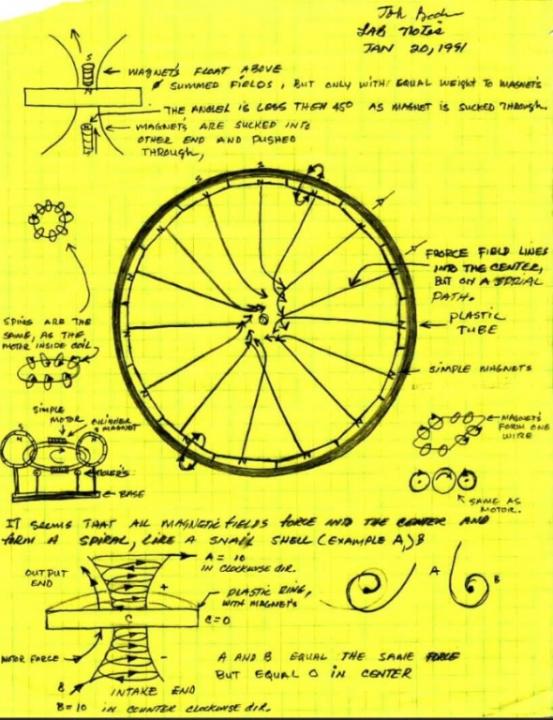 LAB NOTES
JAN 20, 1991
S
MAGNETS FLOAT ABOVE
SUMMED FIELDS, BUT ONLY WITH EQUAL WEIGHT TO MAGNETS
N
THE ANGLE IS LESS THEN 45° AS MAGNET IS SUCKED THROUGH.
MAGNETS ARE SUCKED INTO
OTHER END AND PUSHED
THROUGH,
FFORCE FIELD LINES
INTO THE CENTER,
BUT ON A SPIRAL
PATH.
PLASTIC
TUBE
SIMPLE MAGNETS
SPINS ARE THE
SAME, AS THE
MOTOR INSIDE COIL
SIMPLE
MOTOR
CYLINDER
MAGNET
S
N
ROLER'S
BASE
MAGNETS
FORM ONE
WIRE
SAME AS
MOTOR.
IT SEEMS THAT ALL MAGNETIC FIELDS FORCE INTO THE CENTER AND
FORM A SPIRAL, LIKE A SNAIL SHELL (EXAMPLE A,) B
A = 10
IN CLOCKWISE DIR.
OUTPUT
END
+
PLASTIC RING,
WITH MAGNETS
C
C=0
A
B
MOTOR FORCE
-
A AND B EQUAL THE SAME FORCE
BUT EQUAL O IN CENTER
B
INTAKE END
B=10 IN COUNTER CLOCKWISE DIR.